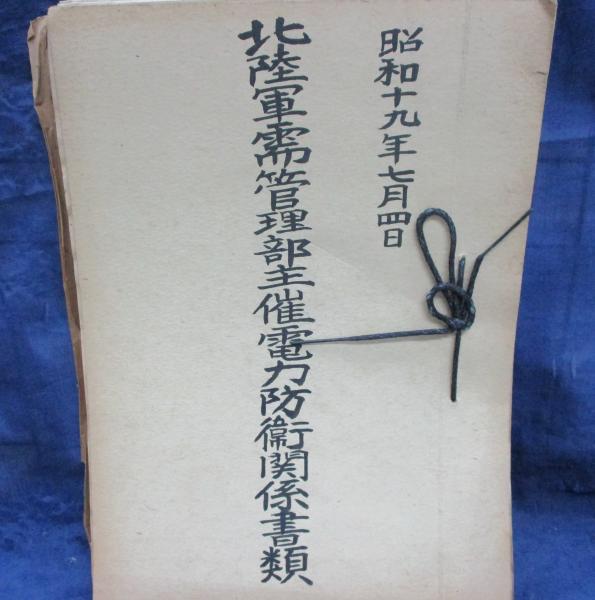 昭和十九年七月四日
北陸軍需管理部主催電力防衛関係書類